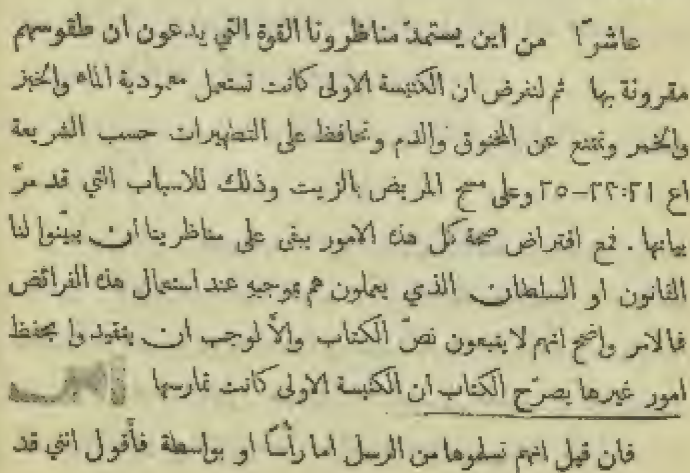 عاشرًا من اين يستمدّ مناظرونا القوة التي يدعون ان طقوسهم
مقرونة بها ثم لنفرض ان الكنيسة الاولى كانت تستعمل معمودية الماء والخبز
والخمر وتمتنع عن المخنوق والدم وتحافظ على التطهيرات حسب الشريعة
اع ٢١:٢٢–٢٥ وعلى مسح المريض بالزيت وذلك للاسباب التي قد مرّ
بيانها . فمع افتراض صحة كل هذه الامور يبقى على مناظرينا ان يبيّنوا لنا
القانون او السلطان الذي يعملون هم بموجبهِ عند استعمال هذه الفرائض
فالامر واضح انهم لا يتبعون نصّ الكتاب والّا لوجب ان يتقيدوا بحفظ
امور غيرها يصرّح الكتاب ان الكنيسة الاولى كانت تمارسها
فان قيل انهم تسلموها من الرسل اما رأسًا او بواسطة فأقول انني قد